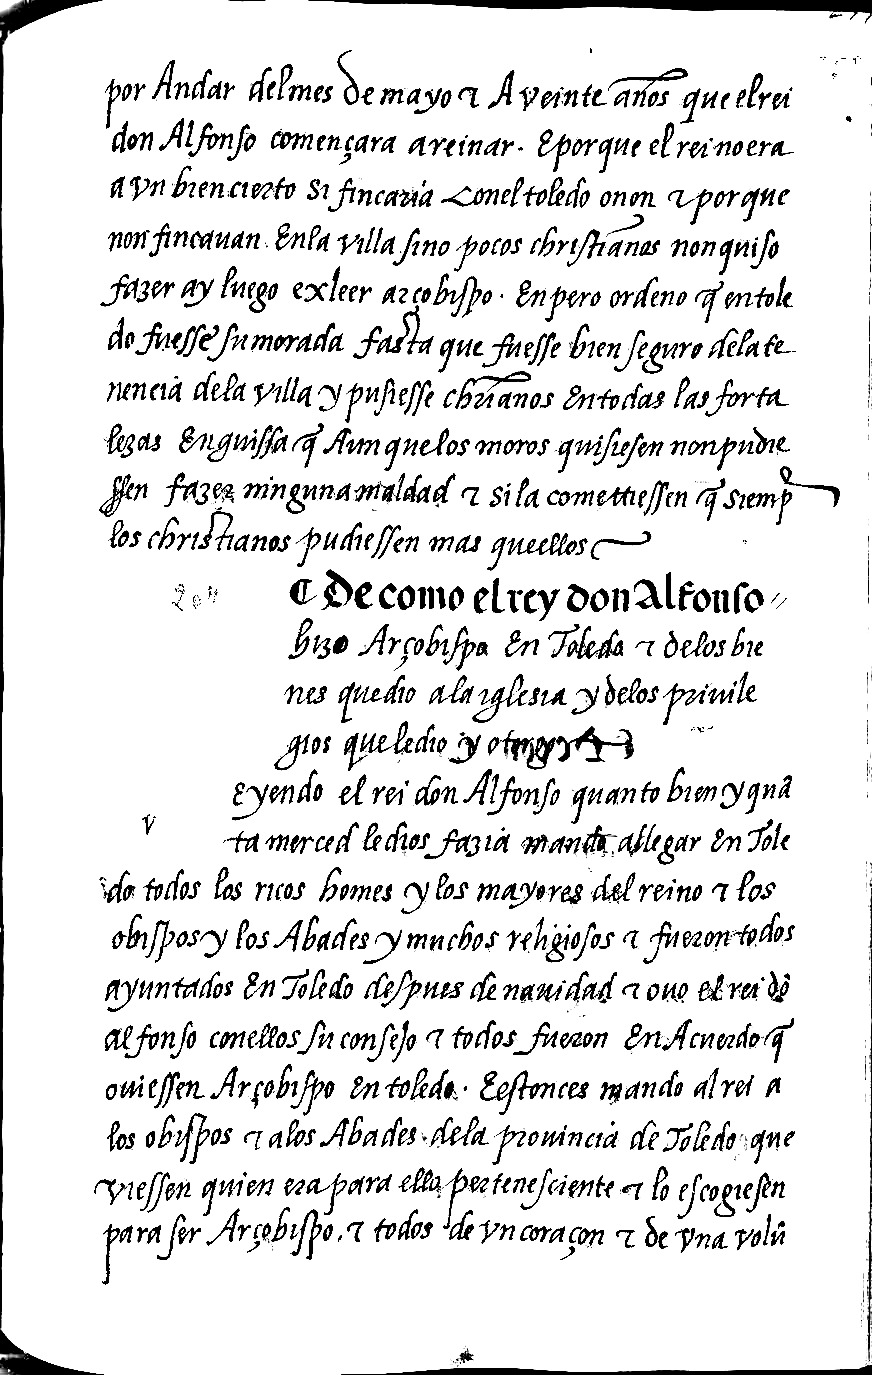 por Andar del mes de mayo ⁊ A veinte años que el rei
don Alfonso començara a reinar. E porque el rei no era
a vn bien cierto Si fincaria Con el toledo o non ⁊ por que
non fincauan En la villa sino pocos christianos non quiso
fazer ay luego exleer arçobispo. Enpero ordeno q̃ en tole
do fuesse su morada fasta que fuesse bien seguro de la te
nencia de la villa y pusiesse chr̃ianos En todas las forta
lezas En guissa q̃ Aun que los moros quisiesen non pudie
ssen fazer ninguna maldad ⁊ si la comettiessen q̃ siemp̃
los christianos pudiessen mas que ellos
204
¶ De como el rey don Alfonso
hizo Arçobispo En Toledo ⁊ de los bie
nes que dio a la iglesia y de los priuile
gios que le dio y
Eyendo el rei don Alfonso quanto bien y quã
v
ta merced le dios fazia mando allegar En Tole
do todos los ricos homes y los mayores del reino ⁊ los
obispos y los Abades y muchos religiosos ⁊ fueron todos
ayuntados En Toledo despues de nauidad ⁊ ouo el rei dõ
alfonso con ellos su consejo ⁊ todos fueron En Acuerdo q̃
ouiessen Arçobispo En toledo. E estonces mando al rei a
los obispos ⁊ a los Abades de la prouincia de Toledo que
viessen quien era para ello pertenesciente ⁊ lo escogiesen
para ser Arçobispo. ⁊ todos de vn coraçon ⁊ de vna volũ